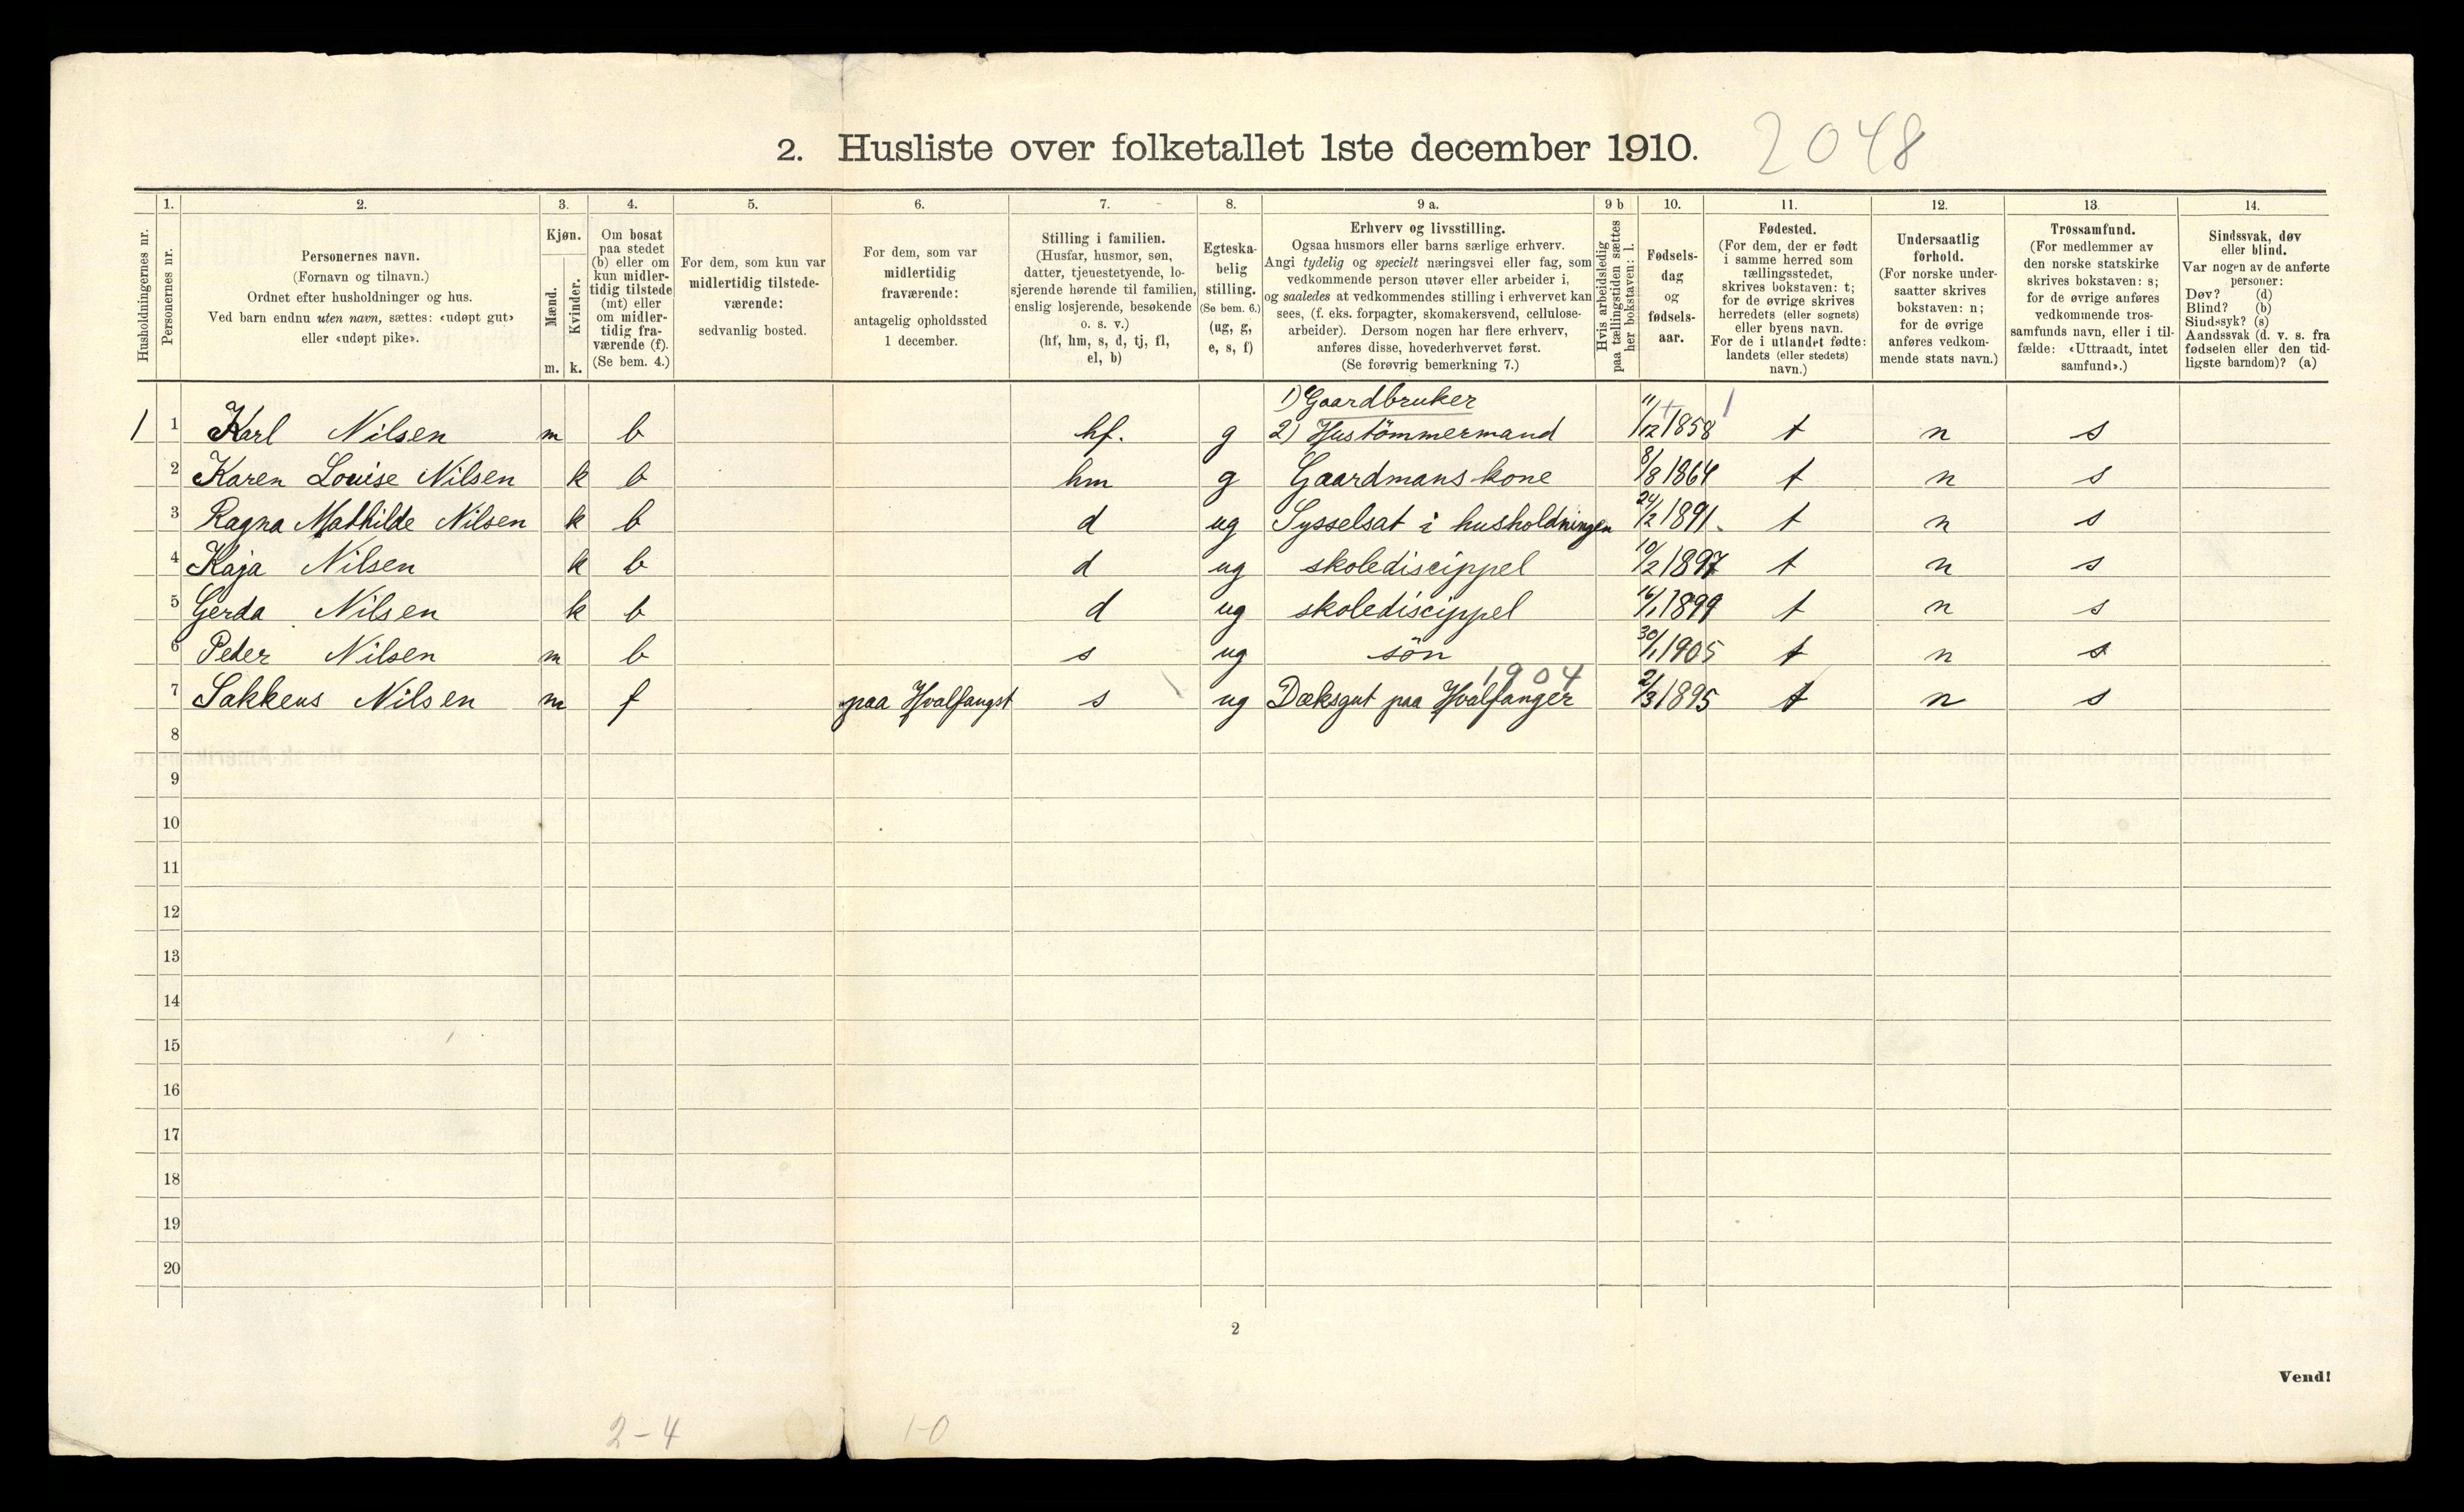 2. Husliste over folketallet 1ste december 1910. 2048
Husholdningernes nr.
1.
Personernes nr.
2.
Personernes navn.
(Fornavn og tilnavn.)
Ordnet efter husholdninger og hus.
Ved barn endnu uten navn, sættes: «udøpt gut»
eller «udøpt pike».
3.
Kjøn.
Mænd.
Kvinder.
m. k.
4.
Om bosat
paa stedet
(b) eller om
kun midler-
tidig tilstede
(mt) eller
om midler-
tidig fra-
værende (f).
(Se bem. 4.)
5.
For dem, som kun var
midlertidig tilstede-
værende:
sedvanlig bosted.
6.
For dem, som var
midlertidig
fraværende:
antagelig opholdssted
1 december.
7.
Stilling i familien.
(Husfar, husmor, søn,
datter, tjenestetyende, lo-
sjerende hørende til familien,
enslig losjerende, besøkende
o. s. v.)
(hf, hm, s, d, tj, fl,
el, b)
8.
Egteska-
belig
stilling.
(Se bem. 6.)
(ug, g,
e, s, f)
9 a.
Erhverv og livsstilling.
Ogsaa husmors eller barns særlige erhverv.
Angi tydelig og specielt næringsvei eller fag, som
vedkommende person utøver eller arbeider i,
og saaledes at vedkommendes stilling i erhvervet kan
sees, (f. eks. forpagter, skomakersvend, cellulose-
arbeider). Dersom nogen har flere erhverv,
anføres disse, hovederhvervet først.
(Se forøvrig bemerkning 7.)
9 b
Hvis arbeidsledig
paa tællingstiden sættes
her bokstaven: l.
10.
Fødsels-
dag
og
fødsels-
aar.
11.
Fødested.
(For dem, der er født
i samme herred som
tællingsstedet,
skrives bokstaven: t;
for de øvrige skrives
herredets (eller sognets)
eller byens navn.
For de i utlandet fødte:
landets (eller stedets)
navn.)
12.
Undersaatlig
forhold.
(For norske under-
saatter skrives
bokstaven: n;
for de øvrige
anføres vedkom-
mende stats navn.)
13.
Trossamfund.
(For medlemmer av
den norske statskirke
skrives bokstaven: s;
for de øvrige anføres
vedkommende tros-
samfunds navn, eller i til-
fælde: «Uttraadt, intet
samfund».)
14.
Sindssvak, døv
eller blind.
Var nogen av de anførte
personer:
Døv? (d)
Blind? (b)
Sindssyk? (s)
Aandssvak (d. v. s. fra
fødselen eller den tid-
ligste barndom)? (a)
1) Gaardbruker
1 1 Karl Nilsen m b hf. g 2) Hustömmermand 11/12 1858 t n s
2 Karen Louise Nilsen k b hm g Gaardmans kone 8/8 1864 t n s
3 Ragna Mathilde Nilsen k b d ug Sysselsat i husholdningen 24/2 1891. t n s
4 Kaja Nilsen k b d ug skolediscippel 10/2 1897 t n s
5 Gerda Nilsen k b d ug skolediscippel 16/1 1899 t n s
6 Peder Nilsen m b s ug sön 30/1 1905 t n s
1904
7 Sakkeus Nilsen m f paa Hvalfangst s ug Dæksgut paa Hvalfanger 2/3 1895 t n s
8
9
10
11
12
13
14
15
16
17
18
19
20
2
Vend!
2-4 1-0